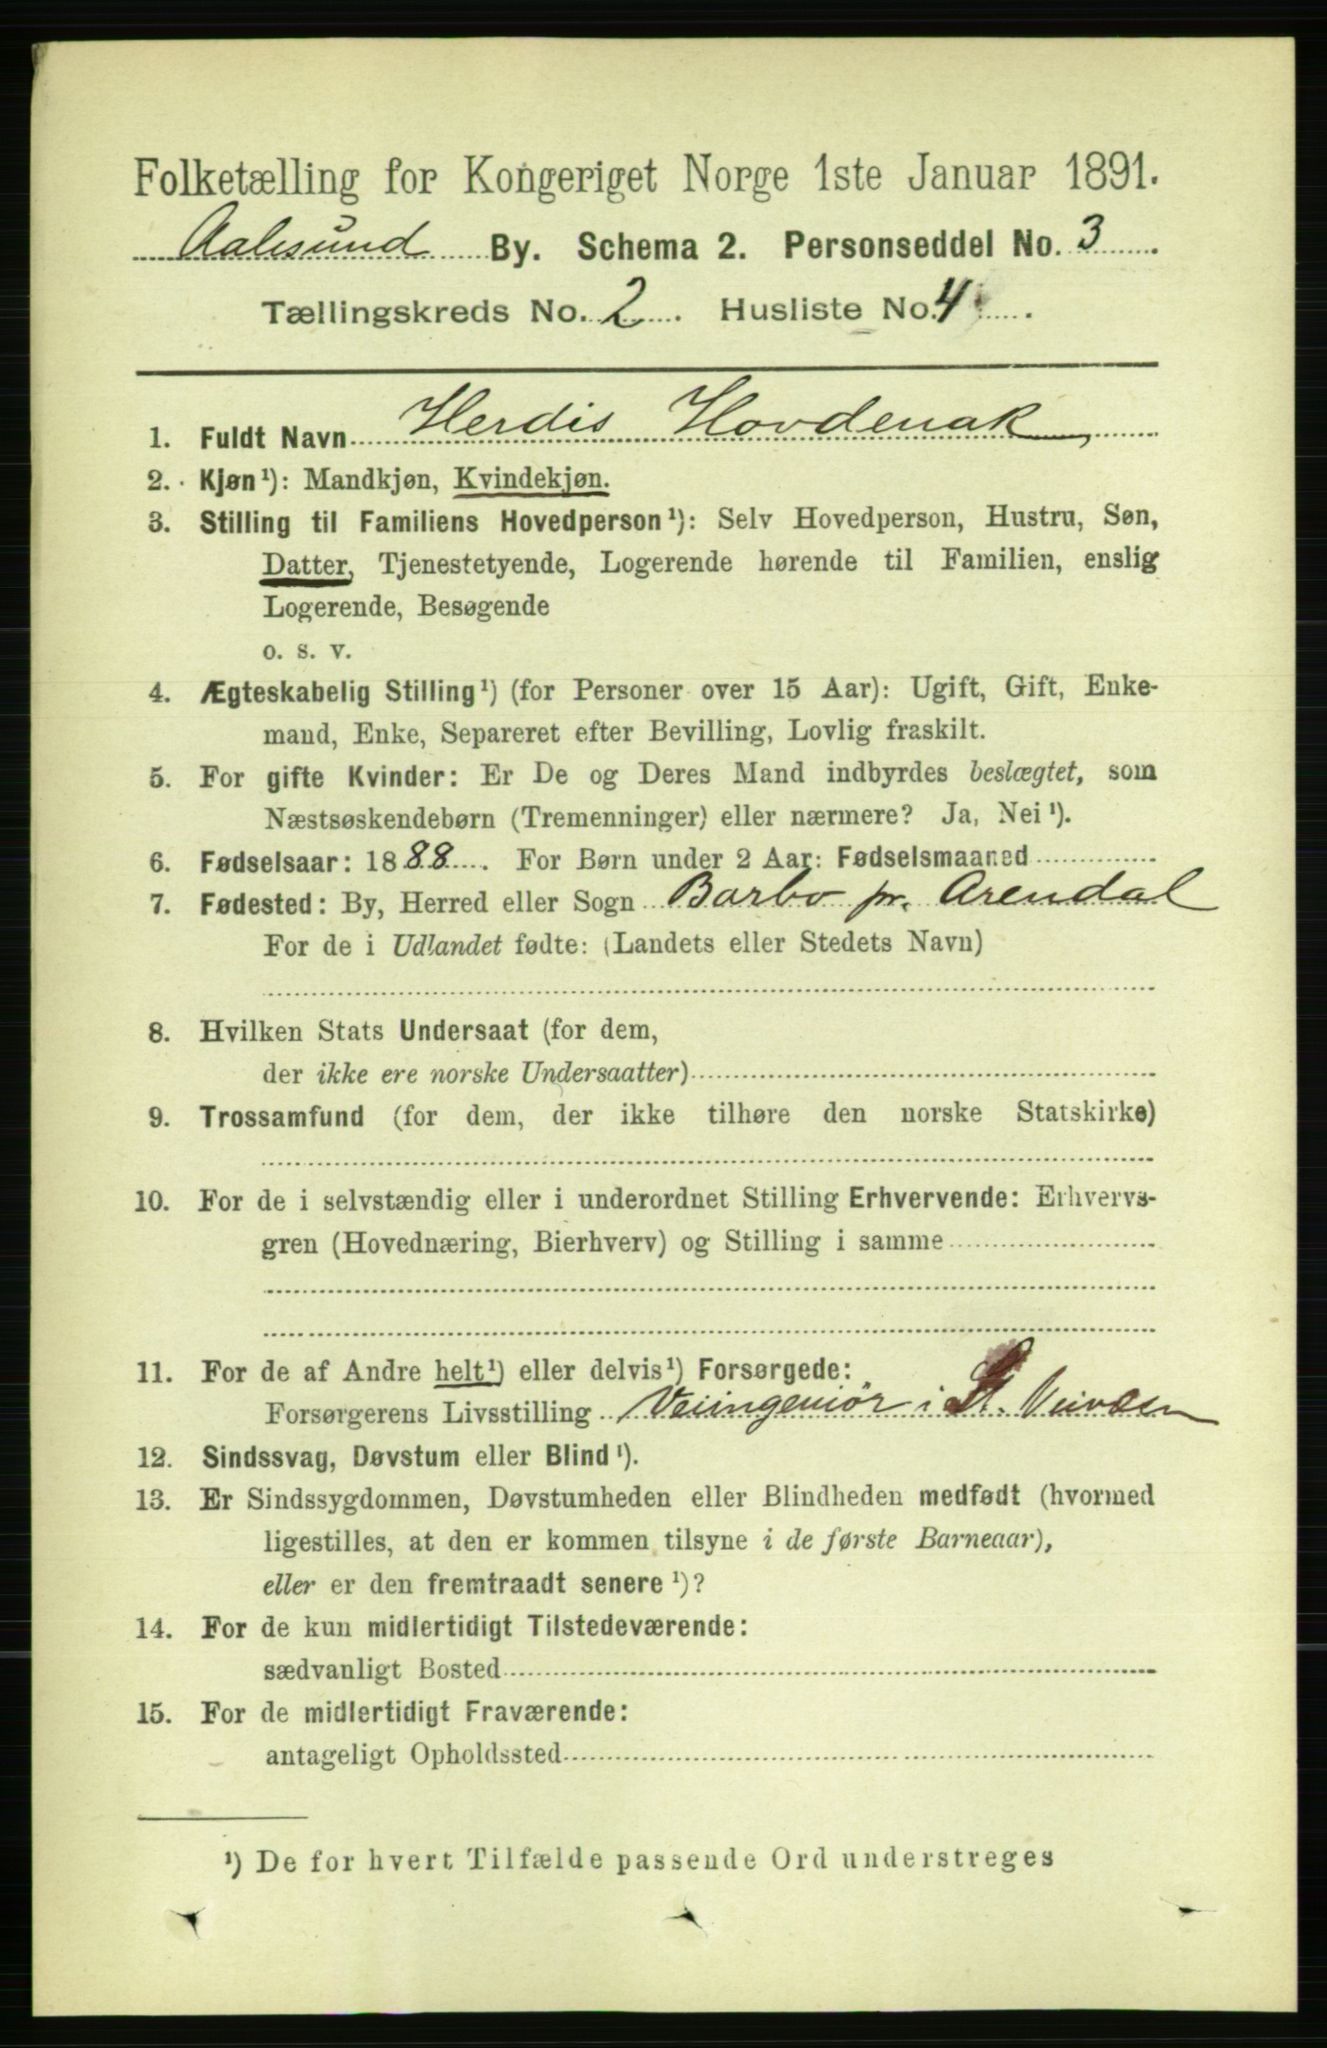 Folketælling for Kongeriget Norge 1ste Januar 1891.
Aalesund By. Schema 2. Personseddel No. 3
Tællingskreds No. 2. Husliste No. 4.
1. Fuldt Navn Herdis Hovdenak
2. Kjøn¹): Mandkjøn, Kvindekjøn.
3. Stilling til Familiens Hovedperson¹): Selv Hovedperson, Hustru, Søn,
Datter, Tjenestetyende, Logerende hørende til Familien, enslig
Logerende, Besøgende
o. s. v.
4. Ægteskabelig Stilling¹) (for Personer over 15 Aar): Ugift, Gift, Enke-
mand, Enke, Separeret efter Bevilling, Lovlig fraskilt.
5. For gifte Kvinder: Er De og Deres Mand indbyrdes beslægtet, som
Næstsøskendebørn (Tremenninger) eller nærmere? Ja, Nei¹).
6. Fødselsaar: 1888. For Børn under 2 Aar: Fødselsmaaned
7. Fødested: By, Herred eller Sogn Barbo pr. Arendal
For de i Udlandet fødte: (Landets eller Stedets Navn)
8. Hvilken Stats Undersaat (for dem,
der ikke ere norske Undersaatter)
9. Trossamfund (for dem, der ikke tilhøre den norske Statskirke)
10. For de i selvstændig eller i underordnet Stilling Erhvervende: Erhvervs-
gren (Hovednæring, Bierhverv) og Stilling i samme
11. For de af Andre helt¹) eller delvis¹) Forsørgede:
Forsørgerens Livsstilling Veiingeniør i St. Veivæsen
12. Sindssvag, Døvstum eller Blind¹).
13. Er Sindssygdommen, Døvstumheden eller Blindheden medfødt (hvormed
ligestilles, at den er kommen tilsyne i de første Barneaar),
eller er den fremtraadt senere¹)?
14. For de kun midlertidigt Tilstedeværende:
sædvanligt Bosted
15. For de midlertidigt Fraværende:
antageligt Opholdssted
¹) De for hvert Tilfælde passende Ord understreges